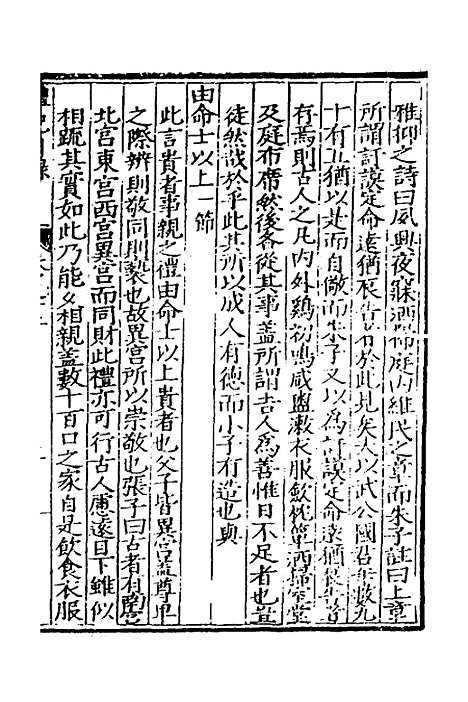 雅抑之詩曰夙興夜寐洒掃庭内維民之章而朱子註曰上章
所謂訏謨定命遠猶辰告者於此見矣夫以武公國君年數九
十有五猶以是而自儆而朱子又以為訏謨定命遠猶辰告者
存焉則古人之凡内外鷄初鳴咸盥漱衣服歛枕簟洒掃室堂
及庭布席然後各從其事蓋所謂吉人為善惟日不足者也豈
徒然哉於乎此其所以成人有德而小子有造也與
由命士以上一節
此言貴者事親之禮由命士以上貴者也父子皆異宫蓋尊卑
之際辨則敬同則褻也故異宫所以崇敬也張子曰古者有南宫
北宫東宫西宫異宫而同財此禮亦可行古人慮遠目下雖似
相疏其實如此乃能久相親蓋數十百口之家自是飲食衣服